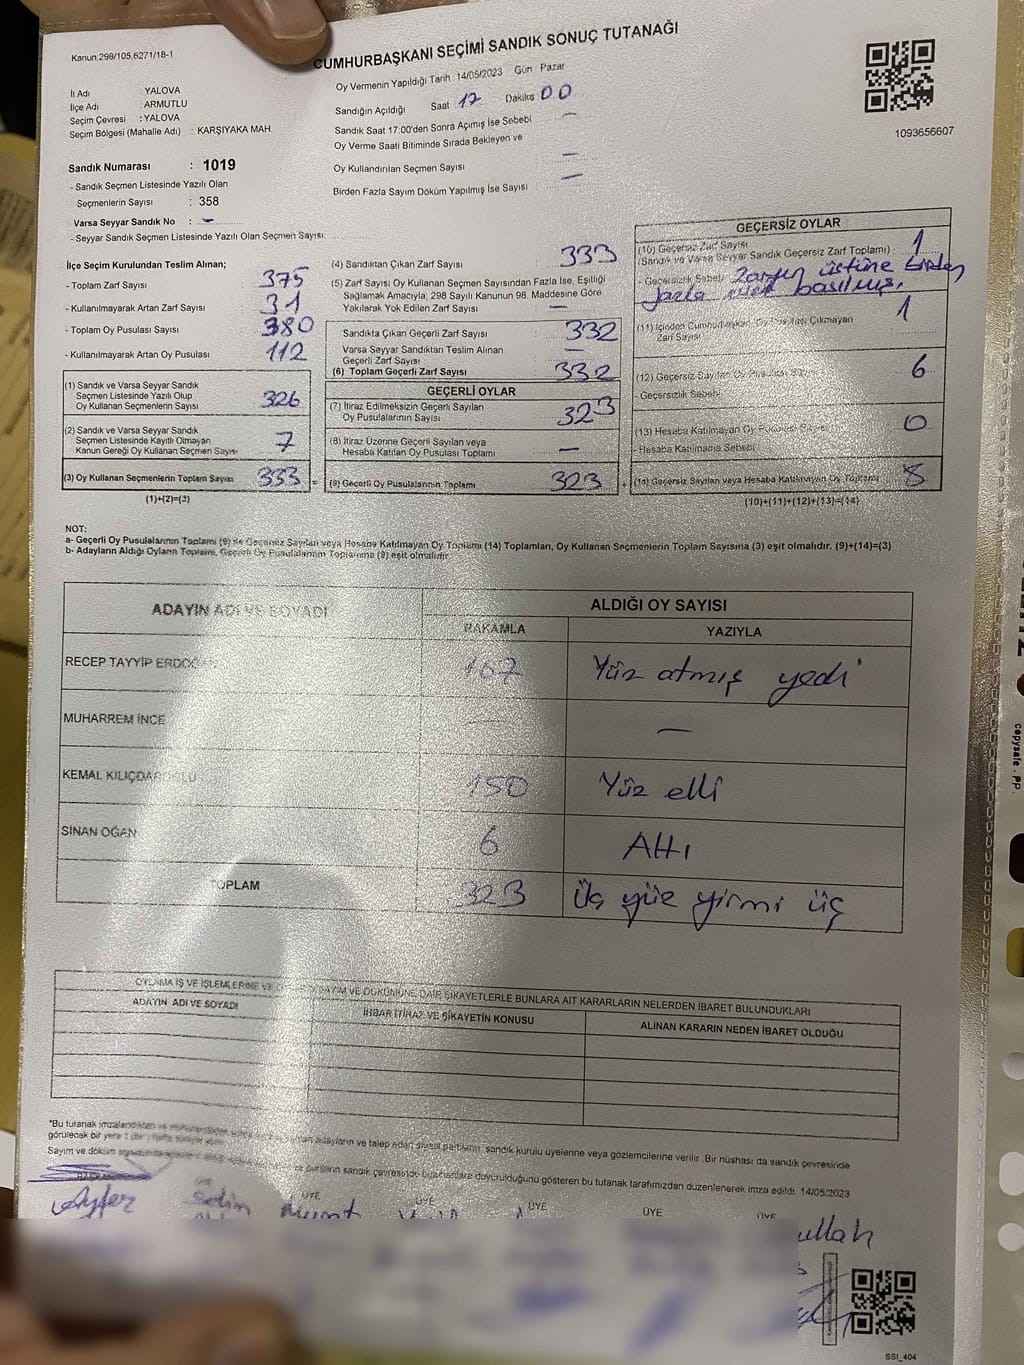 Kanun:298/105,6271/18-1
CUMHURBAŞKANI SEÇİMİ SANDIK SONUÇ TUTANAĞI
İl Adı : YALOVA
İlçe Adı : ARMUTLU
Seçim Çevresi : YALOVA
Seçim Bölgesi (Mahalle Adı) : KARŞIYAKA MAH.
Sandık Numarası : 1019
- Sandık Seçmen Listesinde Yazılı Olan
Seçmenlerin Sayısı : 358
Varsa Seyyar Sandık No : -
- Seyyar Sandık Seçmen Listesinde Yazılı Olan Seçmen Sayısı:
Oy Vermenin Yapıldığı Tarih :14/05/2023 Gün Pazar
Sandığın Açıldığı Saat 17 Dakika 00
Sandık Saat 17:00'den Sonra Açımış İse Sebebi -
Oy Verme Saati Bitiminde Sırada Bekleyen ve
Oy Kullandırılan Seçmen Sayısı -
Birden Fazla Sayım Döküm Yapılmış İse Sayısı -
1093656607
İlçe Seçim Kurulundan Teslim Alınan;
- Toplam Zarf Sayısı 375
- Kullanılmayarak Artan Zarf Sayısı 31
- Toplam Oy Pusulası Sayısı 380
- Kullanılmayarak Artan Oy Pusulası 112
(1) Sandık ve Varsa Seyyar Sandık
Seçmen Listesinde Yazılı Olup
Oy Kullanan Seçmenlerin Sayısı 326
(2) Sandık ve Varsa Seyyar Sandık
Seçmen Listesinde Kayıtlı Olmayan
Kanun Gereği Oy Kullanan Seçmen Sayısı 7
(3) Oy Kullanan Seçmenlerin Toplam Sayısı 333
(1)+(2)=(3)
(4) Sandıktan Çıkan Zarf Sayısı 333
(5) Zarf Sayısı Oy Kullanan Seçmen Sayısından Fazla İse, Eşitliği
Sağlamak Amacıyla; 298 Sayılı Kanunun 98. Maddesine Göre
Yakılarak Yok Edilen Zarf Sayısı -
Sandıkta Çıkan Geçerli Zarf Sayısı 332
Varsa Seyyar Sandıktan Teslim Alınan
Geçerli Zarf Sayısı -
(6) Toplam Geçerli Zarf Sayısı 332
GEÇERLİ OYLAR
(7) İtiraz Edilmeksizin Geçerli Sayılan
Oy Pusulalarının Sayısı 323
(8) İtiraz Üzerine Geçerli Sayılan veya
Hesaba Katılan Oy Pusulası Toplamı -
(9) Geçerli Oy Pusulalarının Toplamı 323
GEÇERSİZ OYLAR
(10) Geçersiz Zarf Sayısı 1
(Sandık ve Varsa Seyyar Sandık Geçersiz Zarf Toplamı)
- Geçersizlik Sebebi Zarfın üstüne birden
fazla basılmış.
(11) İçinden Cumhurbaşkanı Oy Pusulası Çıkmayan
Zarf Sayısı 1
(12) Geçersiz Sayılan Oy Pusulası Sayısı 6
- Geçersizlik Sebebi
(13) Hesaba Katılmayan Oy Pusulası Sayısı 0
- Hesaba Katılmama Sebebi
(14) Geçersiz Sayılan veya Hesaba Katılmayan Oy Toplamı 8
(10)+(11)+(12)+(13)=(14)
NOT:
a- Geçerli Oy Pusulalarının Toplamı (9) ile Geçersiz Sayılan veya Hesaba Katılmayan Oy Toplamı (14) Toplamları, Oy Kullanan Seçmenlerin Toplam Sayısına (3) eşit olmalıdır. (9)+(14)=(3)
b- Adayların Aldığı Oyların Toplamı, Geçerli Oy Pusulalarının Toplamına (9) eşit olmalıdır.
ADAYIN ADI VE SOYADI ALDIĞI OY SAYISI
RAKAMLA YAZIYLA
RECEP TAYYİP ERDOĞAN 167 Yüz atmış yedi
MUHARREM İNCE - -
KEMAL KILIÇDAROĞLU 150 Yüz elli
SİNAN OĞAN 6 Altı
TOPLAM 323 Üç yüz yirmi üç
OYLAMA İŞ VE İŞLEMLERİNE VE SAYIM VE DÖKÜMÜNE DAİR ŞİKAYETLERLE BUNLARA AİT KARARLARIN NELERDEN İBARET BULUNDUKLARI
ADAYIN ADI VE SOYADI İHBAR İTİRAZ VE ŞİKAYETİN KONUSU ALINAN KARARIN NEDEN İBARET OLDUĞU
"Bu tutanak imzalandıktan ve adayların ve talep eden siyasi partilerin sandık kurulu üyelerine veya gözlemcilerine verilir. Bir nüshası da sandık çevresinde
görülecek bir yere
Sayım ve döküm bunların sandık çevresinde duyurulduğunu gösteren bu tutanak tarafımızdan düzenlenerek imza edildi. 14/05/2023
ÜYE ÜYE ÜYE ÜYE ÜYE ÜYE
Ayfer Selim Murat ullah
SSI_404
copysafe PP.